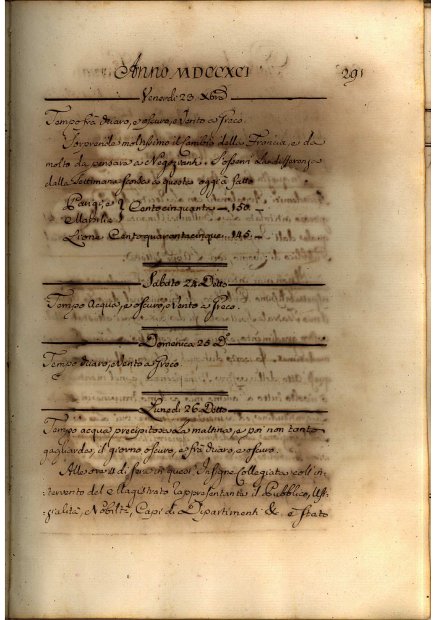 Anno MDCCXCI 291
Venerdì 23 Xbre
Tempo frà chiaro, e oscuro, e Vento a fresco.
Sorprende moltissimo il Cambio della Francia, e da
molto da pensare a Negozianti. la differenza
dalla Settimana scorsa a queste oggi à fatto
Parigi, e
Marsilia } Centocinquanta — 150 —
Lione Centoquarantacinque — 145 —
Sabato 24 Detto
Tempo Acqua, e oscuro, e Vento a fresco
Domenica 25 D.º
Tempo chiaro, e Vento a fresco.
Lunedì 26 Detto
Tempo acqua precipitosa la mattina, e poi non tanto
gagliarda, il giorno oscuro, e frà chiaro, e oscuro.
Alle ore 11 di sera in quest' Insigne Collegiata coll' in-
tervento del Magistrato rappresentante il Pubblico, Uffi-
zialità, Nobiltà, Capi di Dipartimenti & è stato